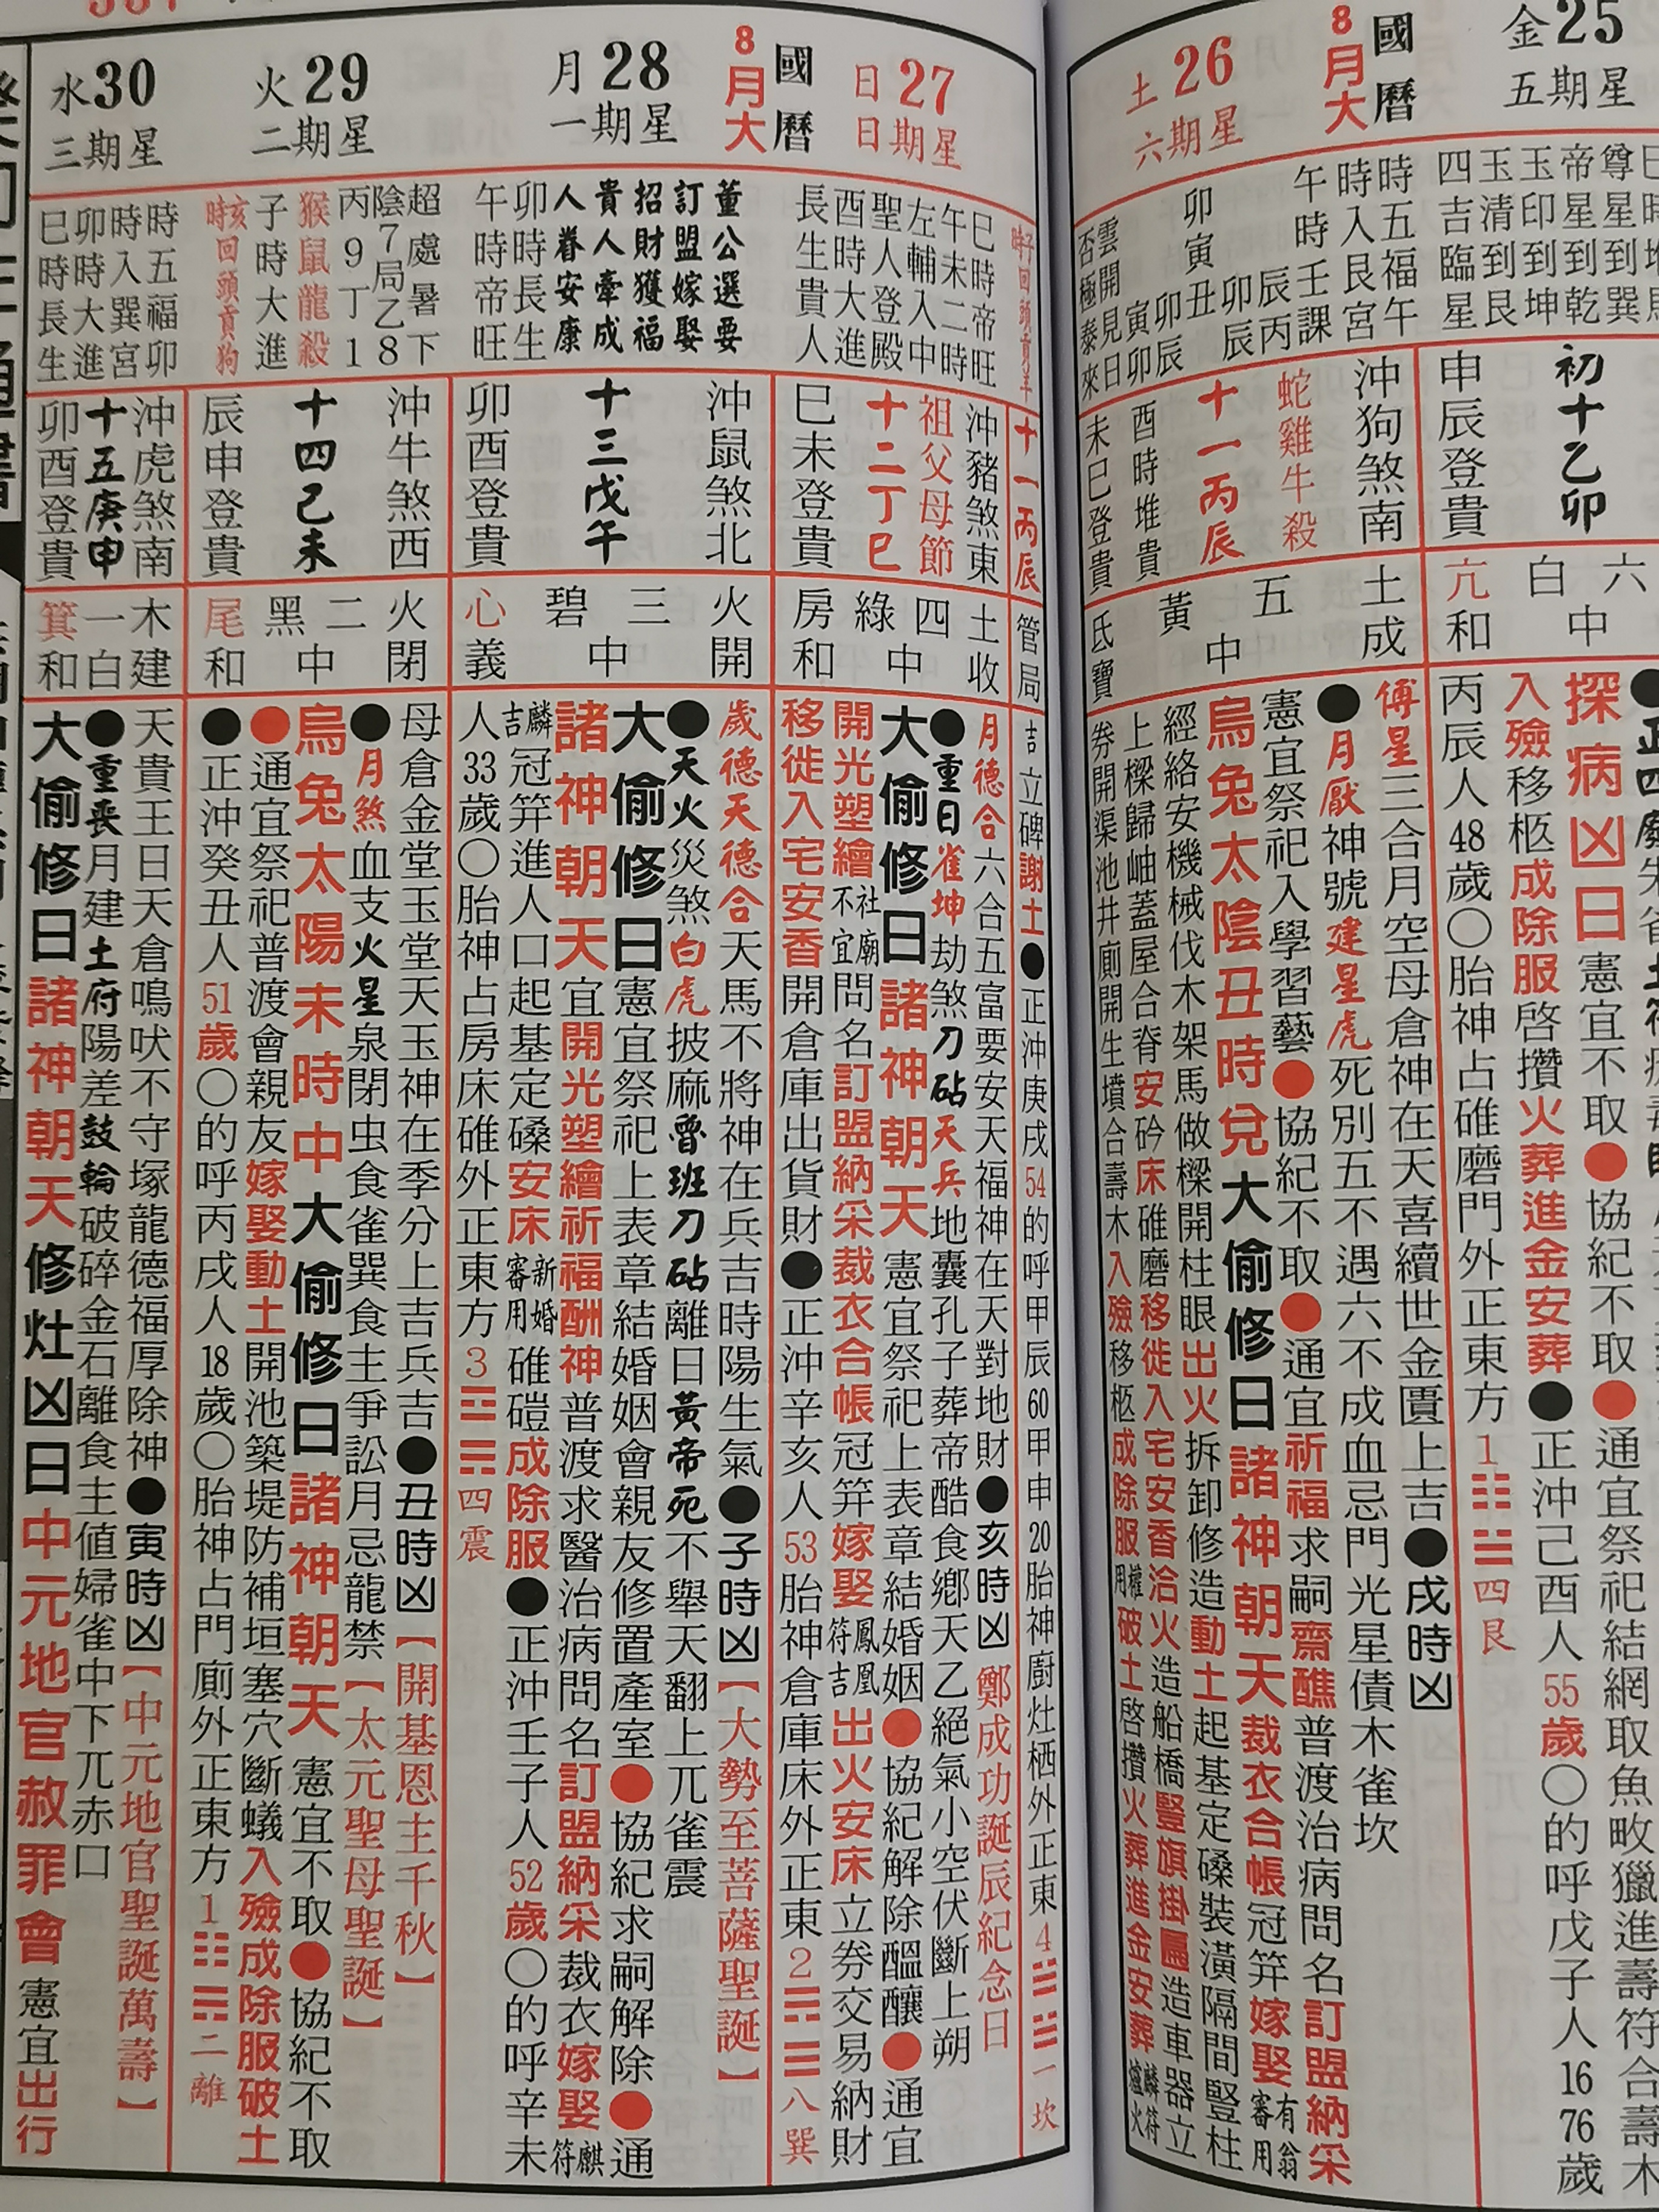 國曆
8月大
金25
星期五
初十乙卯
申辰登貴
六白中
亢和
探病凶日憲宜不取●協紀不取●通宜祭祀結網取魚畋獵進壽符合壽木
入殮移柩成除服啓攢火葬進金安葬●正沖己酉人55歲○的呼戊子人16 76歲
丙辰人48歲○胎神占碓磨門外正東方1
四艮
土26
星期六
時五福午
時入艮宮
午時壬課
雲開見日
否極泰來
沖狗煞南
蛇雞牛殺
十一丙辰
酉時堆貴
未巳登貴
土成
五黃中
氐寶
傅星三合月空母倉神在天喜續世金匱上吉●戌時凶
●月厭神號建星虎死別五不遇六不成血忌門光星債木雀坎
憲宜祭祀入學習藝●協紀不取●通宜祈福求嗣齋醮普渡治病問名訂盟納采
烏兔太陰丑時兌大偷修日諸神朝天裁衣合帳冠笄嫁娶有翁審用
經絡安機械伐木架馬做樑開柱眼出火拆卸修造動土起基定磉裝潢隔間豎柱
上樑歸岫蓋屋合脊安砛床碓磨移徙入宅安香洽火造船橋豎旗掛匾造車器立
券開渠池井廁開生墳合壽木入殮移柩成除服權用破土啓攢火葬進金安葬麟符爐火
十一丙辰
管局
吉立碑謝土●正沖庚戌54的呼甲辰60甲申20胎神廚灶栖外正東4
一坎
日27
星期日
巳時帝旺
午未二時
左輔入中
聖人登殿
酉時大進
長生貴人
沖豬煞東
祖父母節
十二丁巳
巳未登貴
土收
四綠中
房和
月德合六合五富要安天福神在天對地財●亥時凶鄭成功誕辰紀念日
●重日雀坤劫煞刀砧天兵地囊孔子葬帝酷食鄉天乙絕氣小空伏斷上朔
大偷修日諸神朝天憲宜祭祀上表章結婚姻●協紀解除醞釀●通宜
開光塑繪社廟不宜問名訂盟納采裁衣合帳冠笄嫁娶鳳凰符吉出火安床立券交易納財
移徙入宅安香開倉庫出貨財●正沖辛亥人53胎神倉庫床外正東2
八巽
國曆
8月大
月28
星期一
董公選要
訂盟嫁娶
招財獲福
貴人牽成
人眷安康
卯時長生
午時帝旺
沖鼠煞北
十三戊午
卯酉登貴
火開
三碧中
心義
歲德天德合天馬不將神在兵吉時陽生氣●子時凶【大勢至菩薩聖誕】
●天火災煞白虎披麻魯班刀砧離日黃帝死不舉天翻上兀雀震
大偷修日憲宜祭祀上表章結婚姻會親友修置產室●協紀求嗣解除●通
諸神朝天宜開光塑繪祈福酬神普渡求醫治病問名訂盟納采裁衣嫁娶麒符
麟吉冠笄進人口起基定磉安床新婚審用碓磑成除服●正沖壬子人52歲○的呼辛未
人33歲○胎神占房床碓外正東方3
四震
火29
星期二
超處暑下
陰7局乙8
丙9丁1
猴鼠龍殺
子時大進
亥時回頭貢狗
沖牛煞西
十四己未
辰申登貴
火閉
二黑中
尾和
母倉金堂玉堂天玉神在季分上吉兵吉●丑時凶【開基恩主千秋】
●月煞血支火星泉閉虫食雀巽食主爭訟月忌龍禁【太元聖母聖誕】
烏兔太陽未時中大偷修日諸神朝天憲宜不取●協紀不取
●通宜祭祀普渡會親友嫁娶動土開池築堤防補垣塞穴斷蟻入殮成除服破土
●正沖癸丑人51歲○的呼丙戌人18歲○胎神占門廁外正東方1
二離
水30
星期三
時五福卯
時入巽宮
卯時大進
巳時長生
沖虎煞南
十五庚申
卯酉登貴
木建
一白
箕和
天貴王日天倉鳴吠不守塚龍德福厚除神●寅時凶【中元地官聖誕萬壽】
●重喪月建土府陽差鼓輪破碎金石離食主值婦雀中下兀赤口
大偷修日諸神朝天修灶凶日中元地官赦罪會憲宜出行